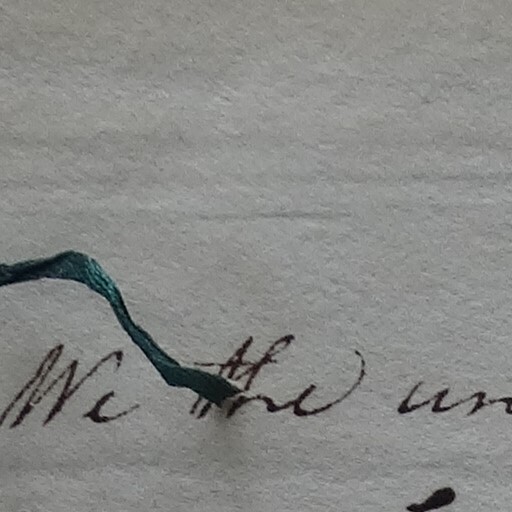 We the un